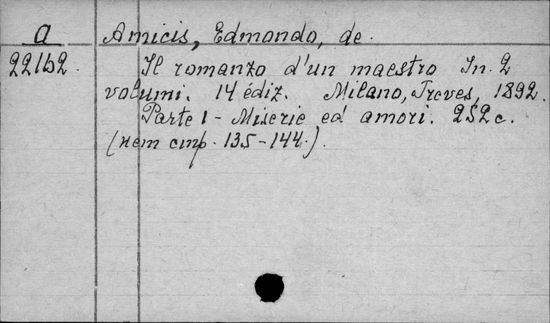 a
Amicis, Edmondo, de.
22162.
Il romanzo d'un maestro In 2
volumi. 14 édiz. Milano, Treves, 1892.
Parte 1 - Miserie ed amori. 252 c.
(нет стр. 135-144.).